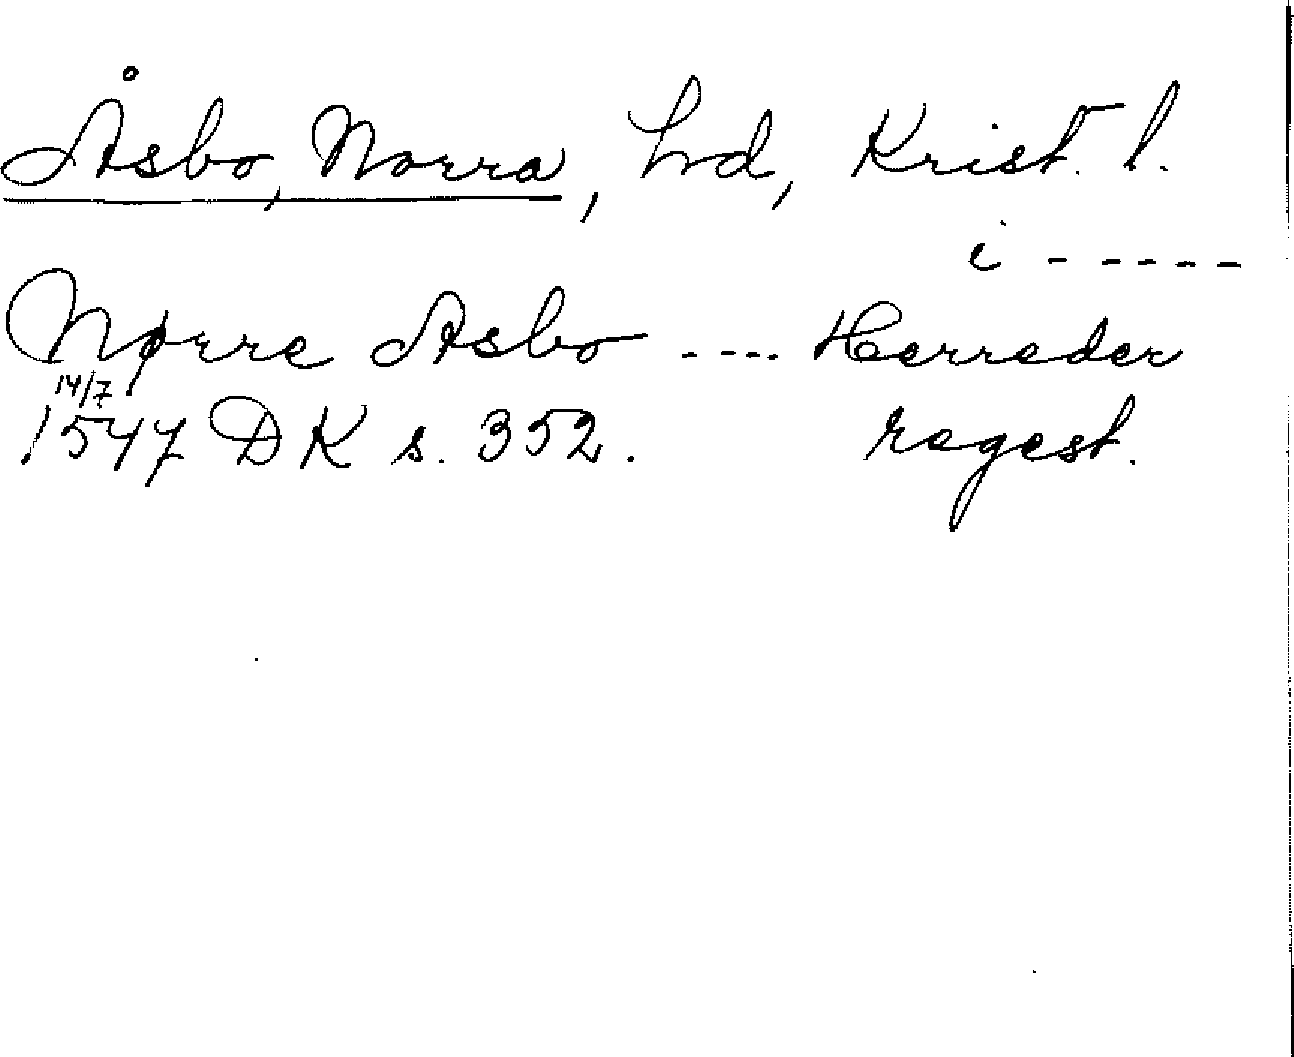 Åsbo, Norra, hd, Krist. l.
i -----
Nørre Asbo ---- Herreder
14/7
1547 DK s. 352. regest.